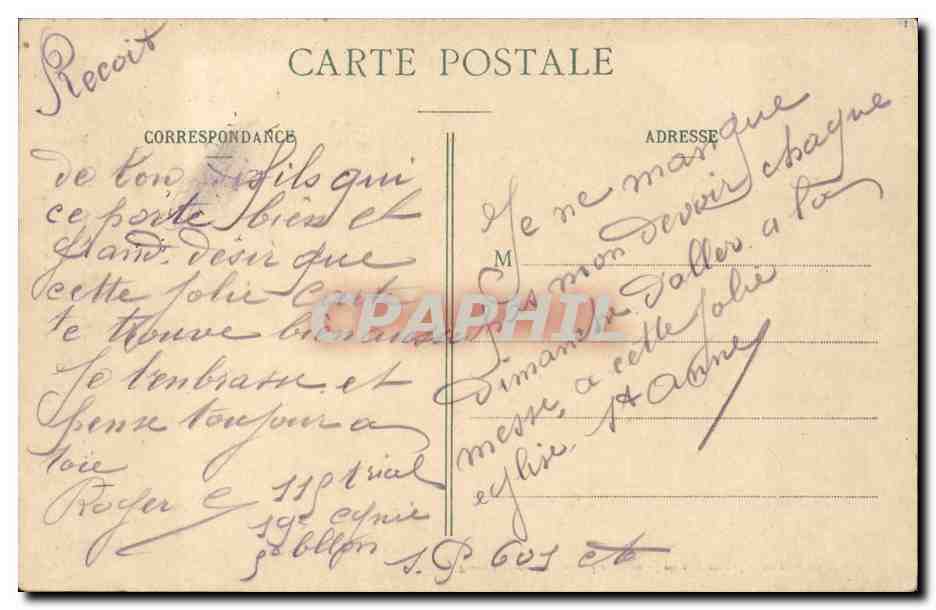 CARTE POSTALE
CORRESPONDANCE
ADRESSE
Recoit
de ton fils qui
ce porte bien et
grand désir que
cette jolie carte
te trouve bien aussi
Je t'enbrasse et
pense toujour a
toie
Roger
119 trial
19e cgnie
S.P. 601
M
Je ne manque
pas mon devoir chaque
Dimanche d'aller a la
messe, a cette jolie
eglise. St Anne
CPAPHIL